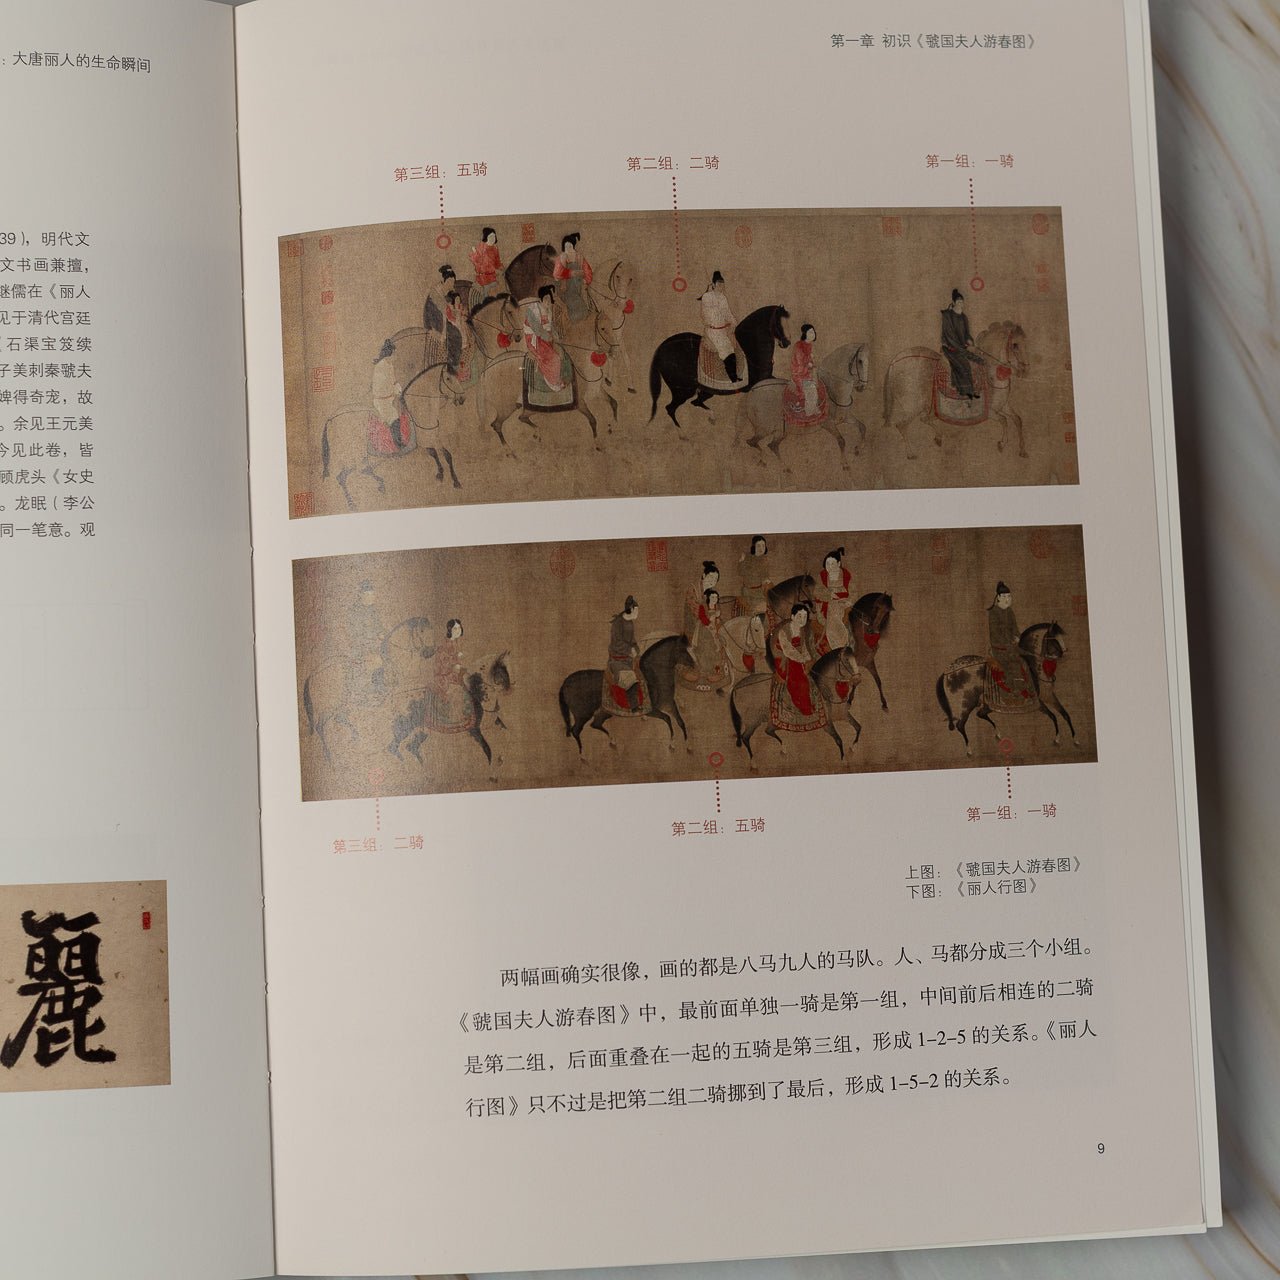 ：大唐丽人的生命瞬间
39），明代文
文书画兼擅，
继儒在《丽人
见于清代宫廷
《石渠宝笈续
子美刺秦虢夫
婢得奇宠，故
。余见王元美
今见此卷，皆
顾虎头《女史
。龙眠（李公
同一笔意。观
麗
第一章 初识《虢国夫人游春图》
第三组：五骑
第二组：二骑
第一组：一骑
第三组：二骑
第二组：五骑
第一组：一骑
上图：《虢国夫人游春图》
下图：《丽人行图》
两幅画确实很像，画的都是八马九人的马队。人、马都分成三个小组。
《虢国夫人游春图》中，最前面单独一骑是第一组，中间前后相连的二骑
是第二组，后面重叠在一起的五骑是第三组，形成 1-2-5 的关系。《丽人
行图》只不过是把第二组二骑挪到了最后，形成 1-5-2 的关系。
9